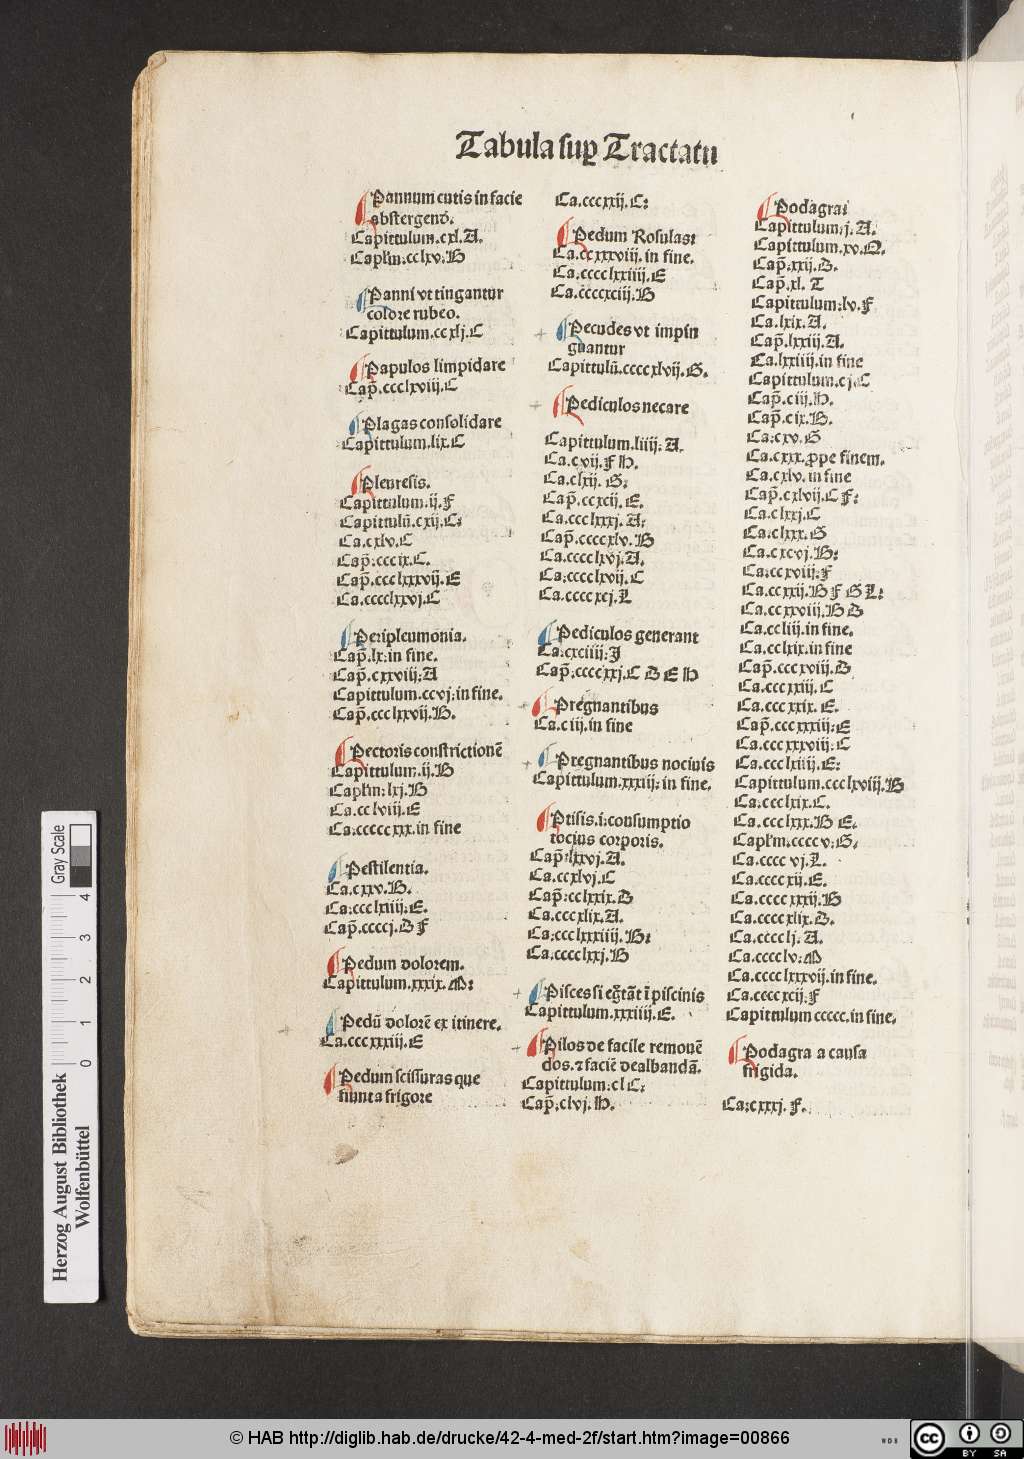 Tabula sup̱ Tractatu
Pannum cutis in facie
abstergenď.
Capittulum.cxl.A.
Capłm:cclxv:B
Panni vt tingantur
colore rubeo.
Capittulum.ccxlj.C
Papulos limpidare
Cap̃.ccclxviij.C
Plagas consolidare
Capittulum.lix.C
Pleuresis.
Capittulum:ij.F
Capittulū.cxij.C:
Ca.cxlv.C
Cap̃:cccix.C.
Cap̃.ccclxxxvij.E
Ca.cccclxxvj.C
Peripleumonia.
Cap̃.lx:in fine.
Cap̃.cxxviij:A
Capittulum.ccvj:in fine.
Cap̃.ccclxxvij.B.
Pectoris constrictionē
Capittulum.ij.B
Capłm:lxj.B
Ca.cclviij.E
Ca:cccccxxx.in fine
Pestilentia.
Ca.cxxv.B.
Ca:ccclxiiij:E.
Cap̃.ccccj.D F
Pedum dolorem.
Capittulum.xxxix.M:
Pedū dolorē ex itinere.
Ca.cccxxxiij.E
Pedum scissuras que
fiunt a frigore
Ca.cccxxij.C:
Pedum Rosulas:
Ca.ccxxxviij.in fine.
Ca.cccclxxiiij.E
Ca.ccccxciij.B
Pecudes vt impin
guantur
Capittulū.ccccxlvij.G.
Pediculos necare
Capittulum.liiij:A.
Ca.cvij.F H.
Ca.clxij.G:
Cap̃.ccxcij.E.
Ca.ccclxxxj.A:
Cap̃.ccccxlv.B
Ca.cccclxvj.A.
Ca:cccclxvij.C
Ca.ccccxcj.L
Pediculos generant
Ca:cxciiij:I
Cap̃:ccccxxj.C D E H
Pregnantibus
Ca.ciij.in fine
Pregnantibus nociuis
Capittulum.xxxiij:in fine.
Ptisis.i:consumptio
tocius corporis.
Cap̃:lxxvj.A.
Ca.ccxlvj.C
Cap̃:cclxxix.D
Ca.cccxlix.A.
Ca:ccclxxxiiij.B:
Ca.cccclxxj.B
Pisces si eg̃tāt ī piscinis
Capittulum.xxxiiij.E.
Pilos de facile remouē
dos.⁊ faciē dealbandā.
Capittulum:cl C:
Cap̃:clvj.H.
Podagra:
Capittulum:j.A.
Capittulum.xv.Q.
Cap̃:xxij.D.
Cap̃.xl.T
Capittulum:lv.F
Ca.lxix.A.
Cap̃.lxxiij.A.
Ca.lxxiiij.in fine
Capittulum.cj.C
Cap̃.ciij.H.
Cap̃.cix.B.
Ca:cxv.G
Ca.cxxx.ꝓpe finem.
Ca.cxlv.in fine
Cap̃.cxlvij.C F:
Ca.clxxj.C
Ca.clxxx.G
Ca.cxcvj.B:
Ca:ccxviij:F
Ca.ccxxij.B F G L:
Ca.ccxxviij.B D
Ca.ccliij.in fine.
Ca.cclxix.in fine
Cap̃.cccxviij.D
Ca.cccxxiij.C
Ca.cccxxix.E.
Cap̃.cccxxxiij:E
Ca.cccxxxviij:C
Ca.cccliiij.E:
Capittulum.ccclxviij.B
Ca:ccclxix.C.
Ca.ccclxxx.B E.
Capłm.ccccv:G.
Ca.ccccvj.L.
Ca.ccccxij.E.
Ca.ccccxxxij.B
Ca.ccccxlix.D.
Ca.cccclj.A.
Ca.cccclv:M
Ca.cccclxxxvij.in fine.
Ca.ccccxcij.F
Capittulum ccccc.in fine.
Podagra a causa
frigida.
Ca:cxxxj.F.
Gray Scale
0 1 2 3 4
Herzog August Bibliothek
Wolfenbüttel
© HAB http://diglib.hab.de/drucke/42-4-med-2f/start.htm?image=00866
WDB
cc BY SA